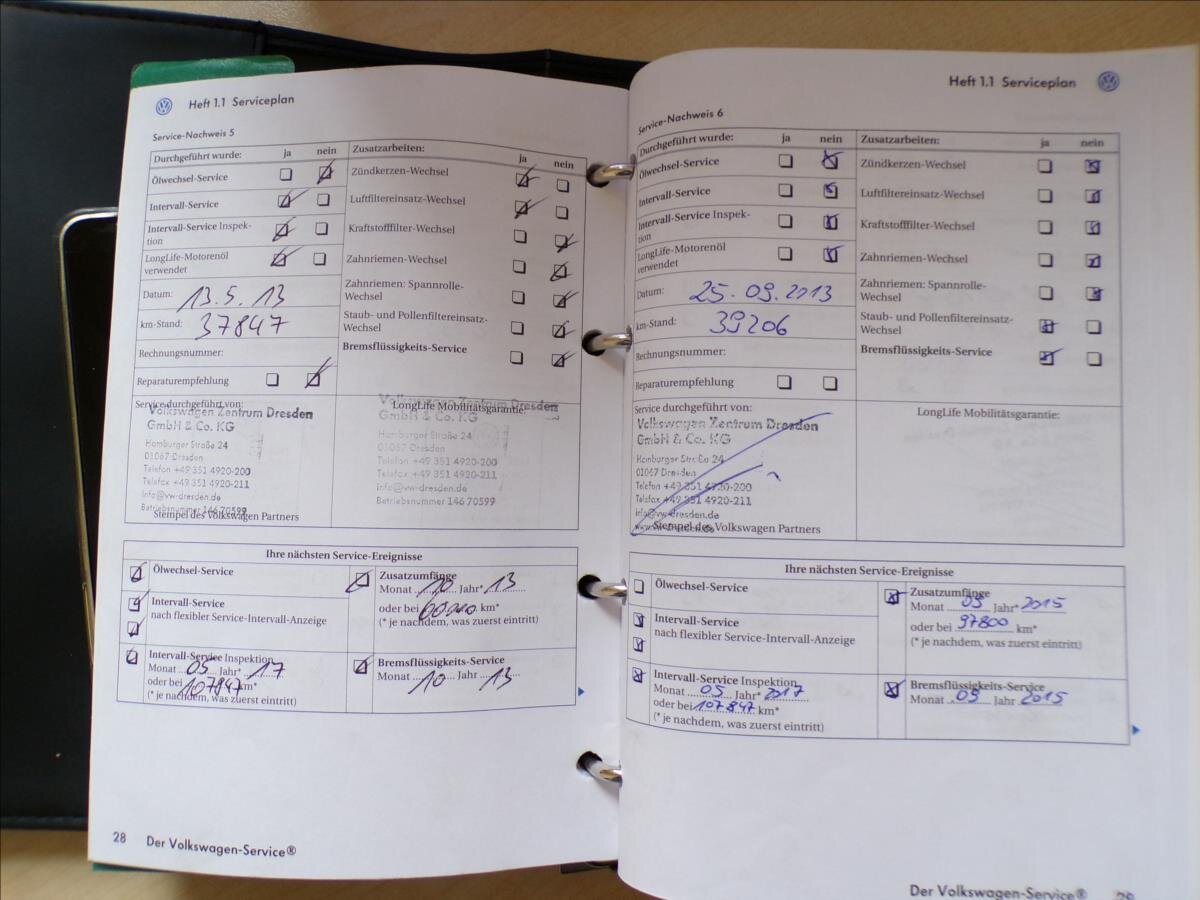 Heft 1.1 Serviceplan
Service-Nachweis 5
Durchgeführt wurde: ja nein
Ölwechsel-Service
Intervall-Service
Intervall-Service Inspek-
tion
LongLife-Motorenöl
verwendet
Datum: 13.5.13
km-Stand: 37847
Rechnungsnummer:
Reparaturempfehlung
Zusatzarbeiten: ja nein
Zündkerzen-Wechsel
Luftfiltereinsatz-Wechsel
Kraftstofffilter-Wechsel
Zahnriemen-Wechsel
Zahnriemen: Spannrolle-
Wechsel
Staub- und Pollenfiltereinsatz-
Wechsel
Bremsflüssigkeits-Service
Service durchgeführt von:
Volkswagen Zentrum Dresden
GmbH & Co. KG
Hamburger Straße 24
01067 Dresden
Telefon +49 351 4920-200
Telefax +49 351 4920-211
info@vw-dresden.de
Betriebsnummer 146 70599
Stempel des Volkswagen Partners
LongLife Mobilitätsgarantie:
Volkswagen Zentrum Dresden
GmbH & Co. KG
Hamburger Straße 24
01067 Dresden
Telefon +49 351 4920-200
Telefax +49 351 4920-211
info@vw-dresden.de
Betriebsnummer 146 70599
Ihre nächsten Service-Ereignisse
Ölwechsel-Service
Intervall-Service
nach flexibler Service-Intervall-Anzeige
Intervall-Service Inspektion
Monat 05 Jahr* 17
oder bei 107847 km*
(* je nachdem, was zuerst eintritt)
Zusatzumfänge
Monat 10 Jahr* 13
oder bei km*
(* je nachdem, was zuerst eintritt)
Bremsflüssigkeits-Service
Monat 10 Jahr 13
28 Der Volkswagen-Service®
Heft 1.1 Serviceplan
Service-Nachweis 6
Durchgeführt wurde: ja nein
Ölwechsel-Service
Intervall-Service
Intervall-Service Inspek-
tion
LongLife-Motorenöl
verwendet
Datum: 25.09.2013
km-Stand: 39206
Rechnungsnummer:
Reparaturempfehlung
Zusatzarbeiten: ja nein
Zündkerzen-Wechsel
Luftfiltereinsatz-Wechsel
Kraftstofffilter-Wechsel
Zahnriemen-Wechsel
Zahnriemen: Spannrolle-
Wechsel
Staub- und Pollenfiltereinsatz-
Wechsel
Bremsflüssigkeits-Service
Service durchgeführt von:
Volkswagen Zentrum Dresden
GmbH & Co. KG
Hamburger Straße 24
01067 Dresden
Telefon +49 351 4920-200
Telefax +49 351 4920-211
info@vw-dresden.de
www.vw-dresden.de
Stempel des Volkswagen Partners
LongLife Mobilitätsgarantie:
Ihre nächsten Service-Ereignisse
Ölwechsel-Service
Intervall-Service
nach flexibler Service-Intervall-Anzeige
Intervall-Service Inspektion
Monat 05 Jahr* 2017
oder bei 107847 km*
(* je nachdem, was zuerst eintritt)
Zusatzumfänge
Monat 05 Jahr* 2015
oder bei 97800 km*
(* je nachdem, was zuerst eintritt)
Bremsflüssigkeits-Service
Monat 09 Jahr 2015
Der Volkswagen-Service® 29